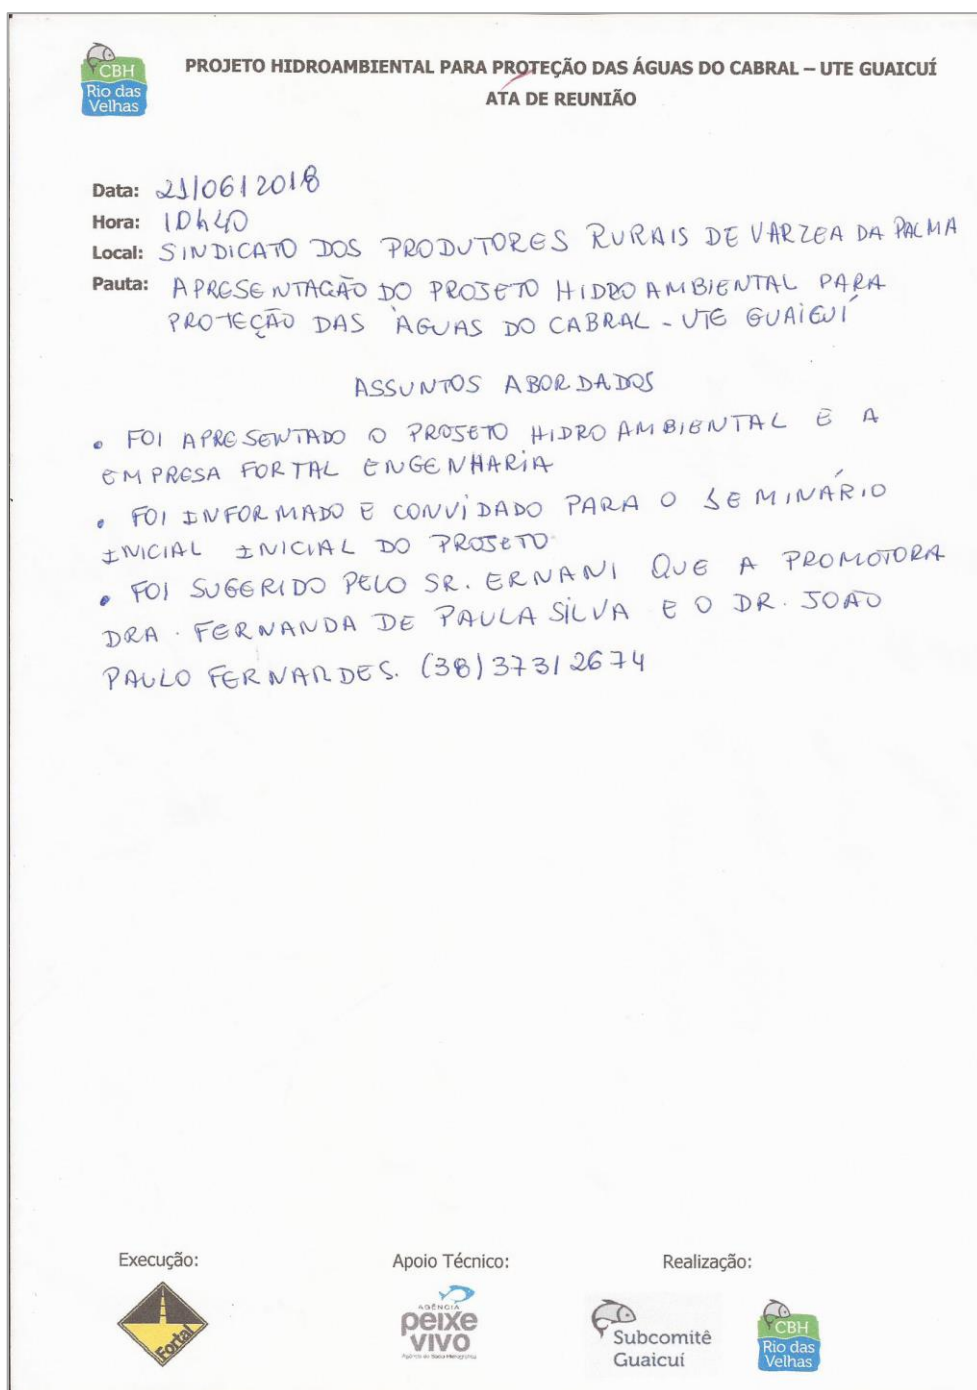 CBH
Rio das
Velhas
PROJETO HIDROAMBIENTAL PARA PROTEÇÃO DAS ÁGUAS DO CABRAL – UTE GUAICUÍ
ATA DE REUNIÃO
Data: 21/06/2018
Hora: 10h40
Local: SINDICATO DOS PRODUTORES RURAIS DE VARZEA DA PALMA
Pauta: APRESENTAÇÃO DO PROJETO HIDROAMBIENTAL PARA
PROTEÇÃO DAS ÁGUAS DO CABRAL - UTE GUAICUÍ
ASSUNTOS ABORDADOS
• FOI APRESENTADO O PROJETO HIDROAMBIENTAL E A
EMPRESA FORTAL ENGENHARIA
• FOI INFORMADO E CONVIDADO PARA O SEMINÁRIO
INICIAL INICIAL DO PROJETO
• FOI SUGERIDO PELO SR. ERNANI QUE A PROMOTORA
DRA. FERNANDA DE PAULA SILVA E O DR. JOÃO
PAULO FERNANDES. (38) 3731 2674
Execução:
Apoio Técnico:
Realização:
Fortal
AGÊNCIA
peixe
VIVO
Subcomitê
Guaicuí
CBH
Rio das
Velhas